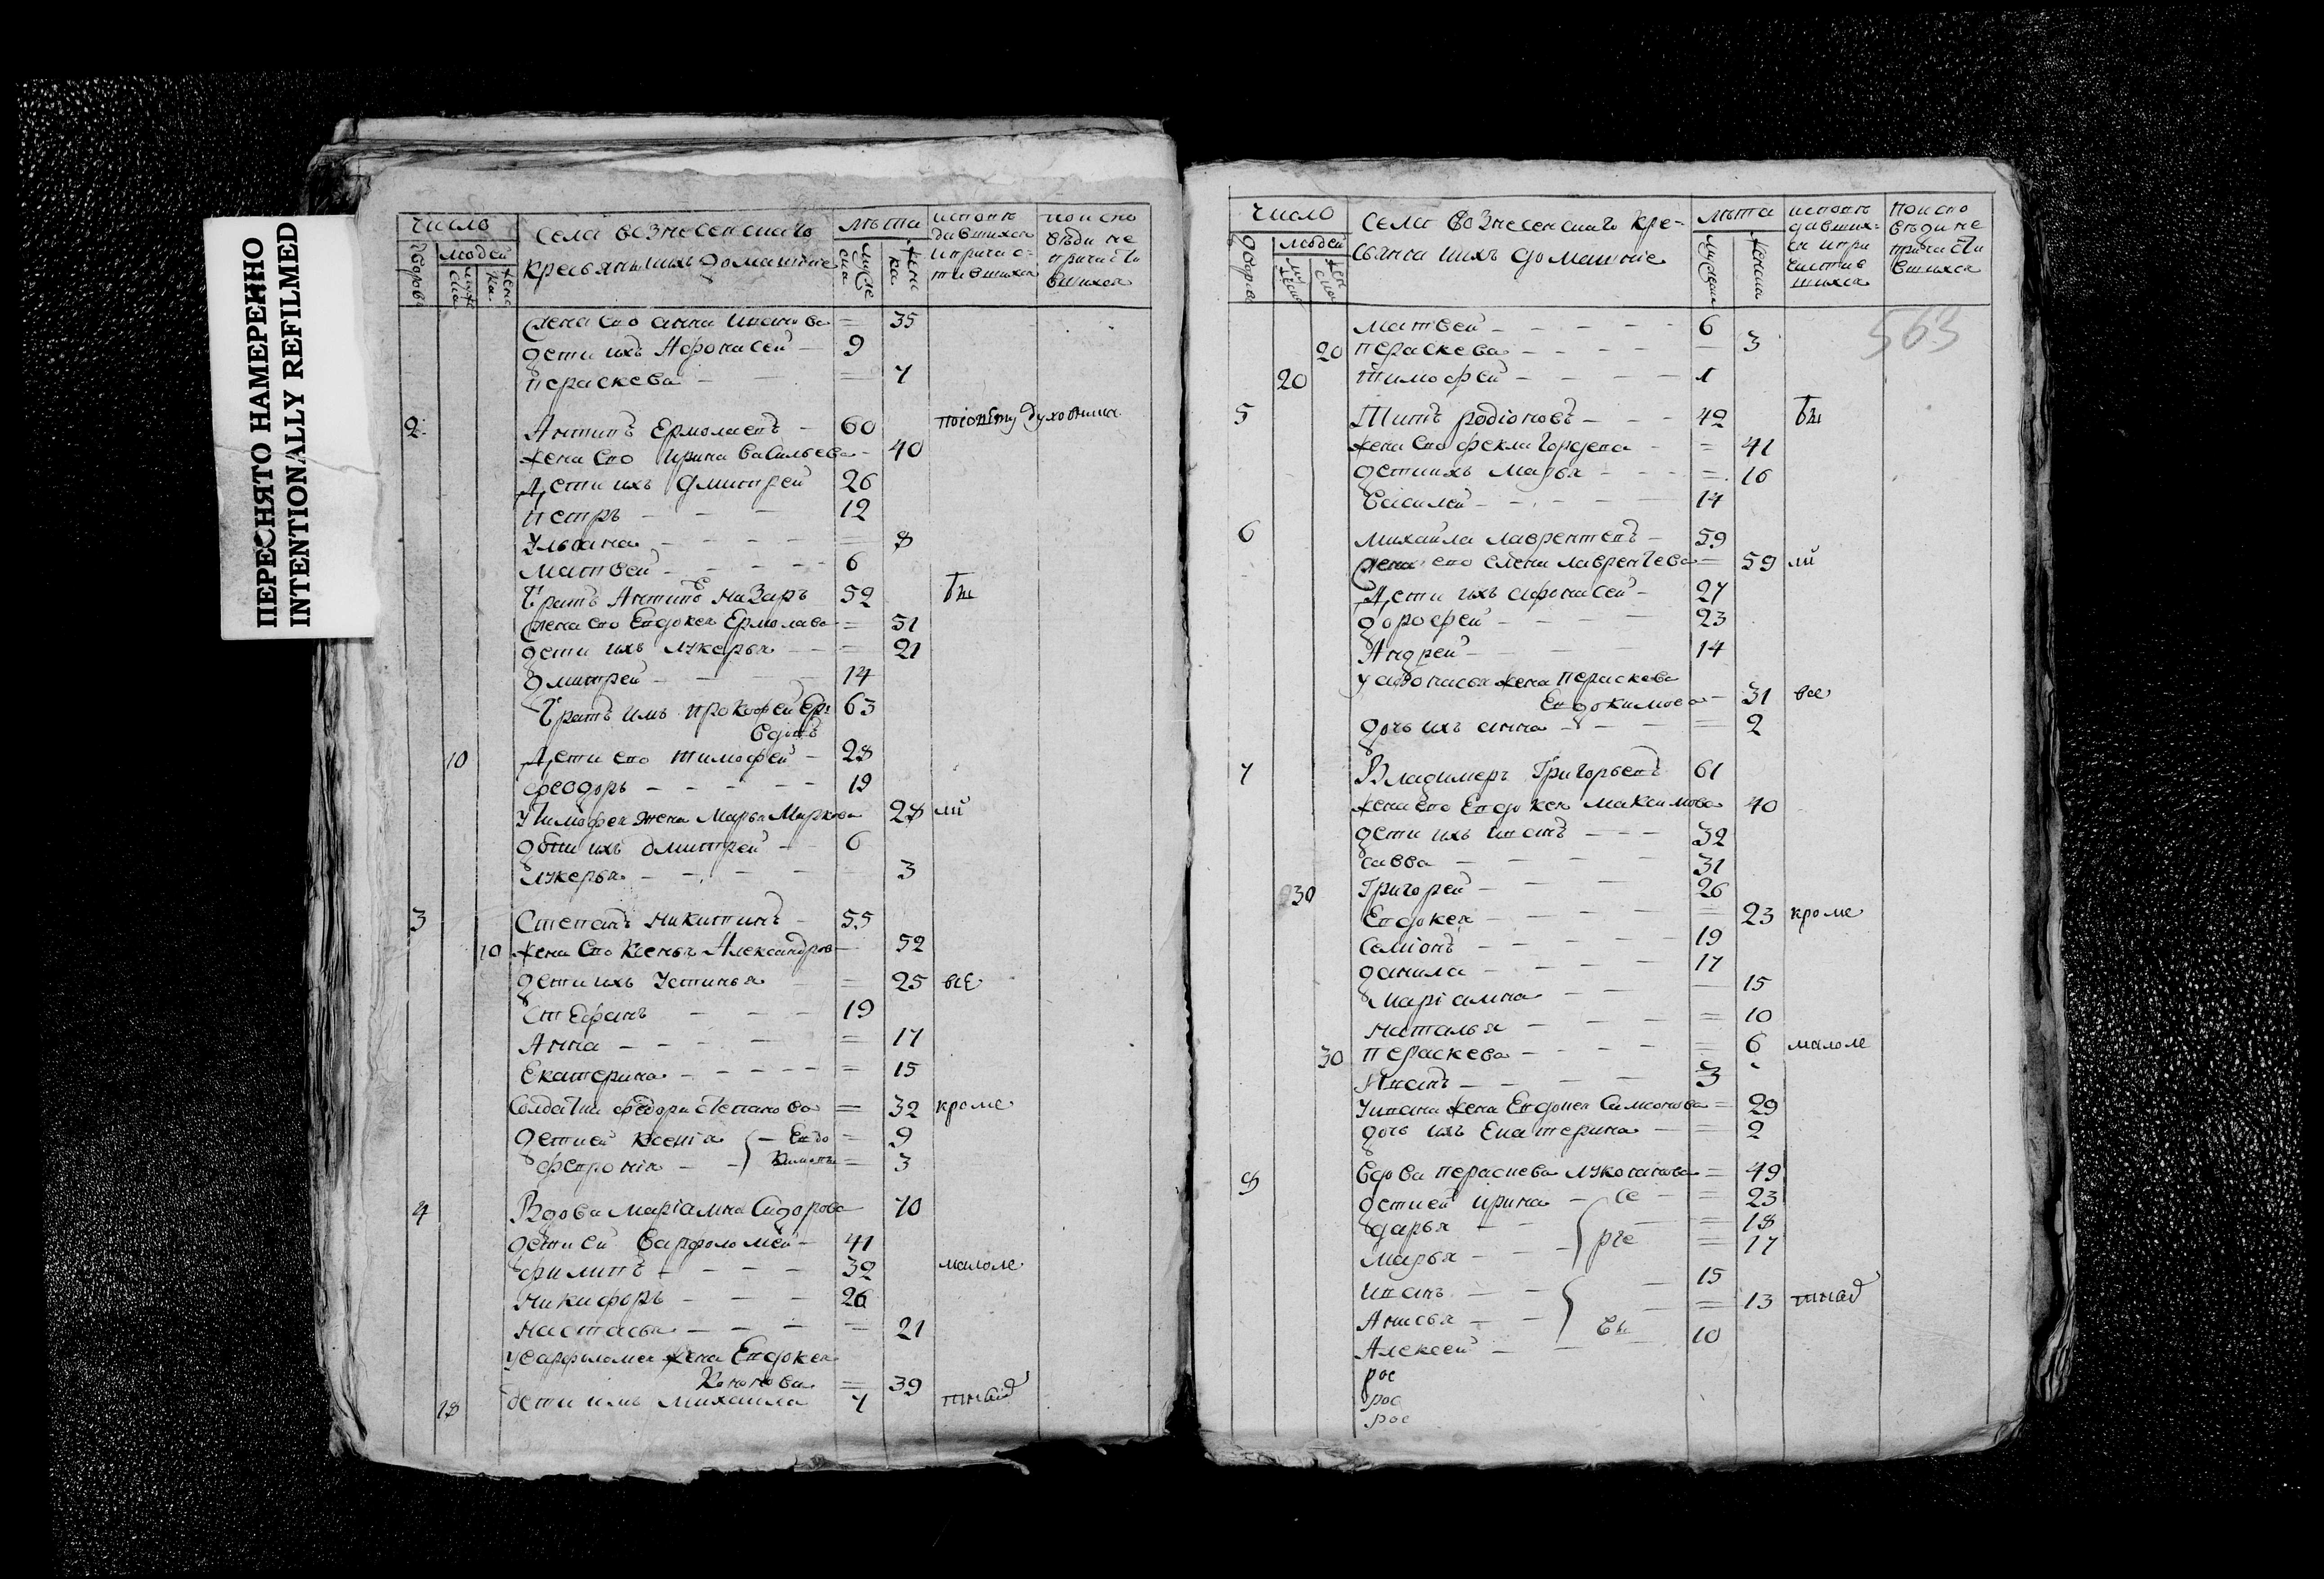 ПЕРЕСНЯТО НАМЕРЕННО
INTENTIONALLY REFILMED
число
дворовъ
людей
села вознесенскаго
крестьяни ихъ домашние
лѣта
исповѣ
давшихся
и прича с-
тившихся
по испо
вѣди не
причасти
вшихся
жена ево анна иванова = 35
дети ихъ Афонасей — 9
пераскева — = 7
2 Антипъ Ермолаевъ — 60
жена ево ирина васильева — 40
Дети ихъ дмитрей 26
петръ — — — 12
Ульяна — — — = 8
матвей — — — 6
братъ Антипѣ назаръ 52 бы
жена ево Евдокея Ермолаева = 51
дети ихъ лукерья — = 21
дмитрей — — — 14
братъ имъ прокофей 63
10 Дети ево тимофей — 28
феодоръ — — — 19
У тимофея жена Марья Маркова 28 ли
дѣти ихъ дмитрей — 6
лукерья — — — 3
3 Степанъ никитинъ — 55
10 жена ево Ксенья Александрова — 52
дети ихъ Устинья — = 25 все
стефанъ — — — 19
Анна — — — = 17
Екатерина — — — = 15
Солдатка федора степанова = 32 кроме
детией ксенiа — = 9
февронiя — — = 3
4 Вдова Марiамна Сидорова 70
дети ей Варфоломей — 41
филипъ — — — 32 малоле
никифоръ — — — 26
настасья — — — = 21
у варфоломея жена Евдокея
= 39
18 дети имъ михаила 7 тнад
число
дворовъ
людей
села вознесенскаго кре-
стьяна ихъ домашние
лѣта
исповѣ
давших-
ся и при
частив
шихся
по испо
вѣди не
причасти
вшихся
563
матвей — — — 6
20 пераскева — — — — 3
20 тимофей — — — 1
5 Титъ родiоновъ — — 42 бы
жена ево фекла Гордева — = 41
дети ихъ марья — — = 16
василей — — — 14
6 михайла лаврентевъ — 59
жена ево елена лаврентева = 59 ли
Дети ихъ афонасей — 27
дорофей — — — 23
Андрей — — — 14
у афонасья жена пераскева
Евдокимова — 31 все
дочь ихъ анна — — = 2
7 Владимеръ Григорьевъ 61
жена ево Евдокея максимова 40
дети ихъ иванъ — — — 32
савва — — — 31
30 Григорей — — — 26
Евдокея — — — = 23 кроме
Семiонъ — — — 19
данила — — — 17
марiамна — — — 15
наталья — — — = 10
30 пераскева — — — = 6 малоле
Иванъ — — — 3
У ивана жена Евдокея Симонова = 29
дочь ихъ Екатерина — = 2
8 вдова пераскева лукоянова = 49
детией ирина — се — = 23
дарья — — = 18
марья — — рге = 17
иванъ — — — 15
Анисья — — = 13 тнад
Алексей — — вы 10
рос
рос
рос